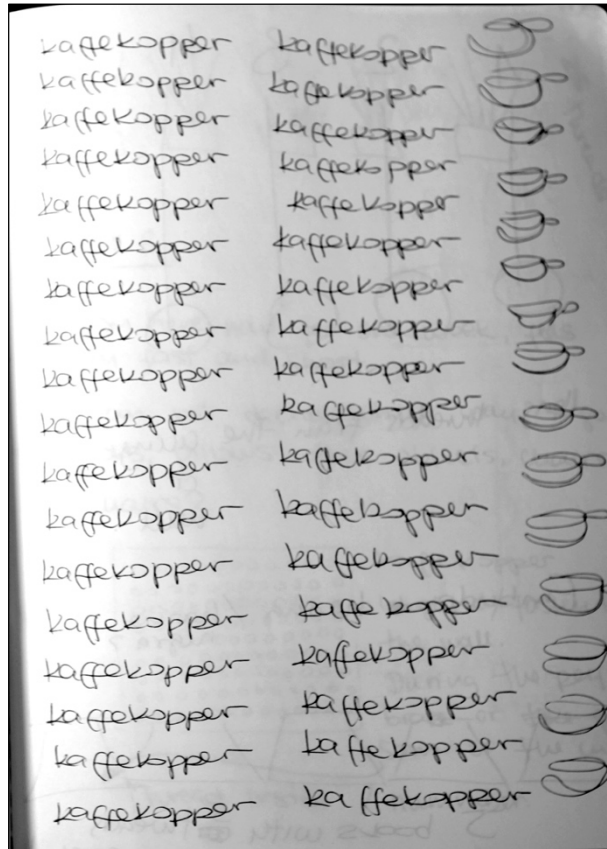 kaffekopper kaffekopper
kaffekopper kaffekopper
kaffekopper kaffekopper
kaffekopper kaffekopper
kaffekopper kaffekopper
kaffekopper kaffekopper
kaffekopper kaffekopper
kaffekopper kaffekopper
kaffekopper kaffekopper
kaffekopper kaffekopper
kaffekopper kaffekopper
kaffekopper kaffekopper
kaffekopper kaffekopper
kaffekopper kaffekopper
kaffekopper kaffekopper
kaffekopper kaffekopper
kaffekopper kaffekopper
kaffekopper kaffekopper